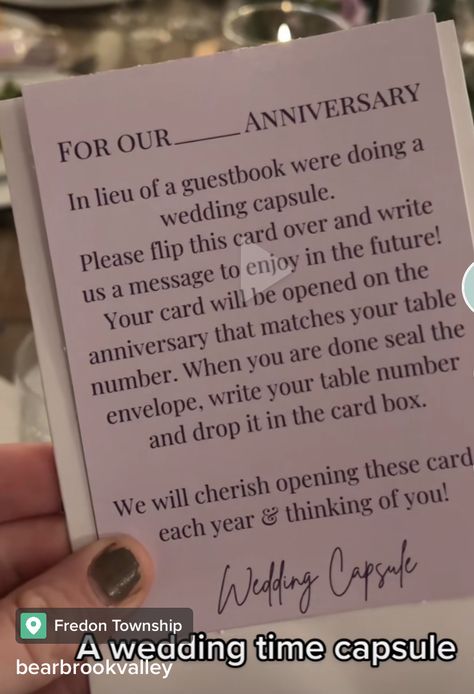 FOR OUR_____ANNIVERSARY
In lieu of a guestbook were doing a
wedding capsule.
Please flip this card over and write
us a message to enjoy in the future!
Your card will be opened on the
anniversary that matches your table
number. When you are done seal the
envelope, write your table number
and drop it in the card box.
We will cherish opening these card
each year & thinking of you!
Wedding Capsule
Fredon Township
A wedding time capsule
bearbrookvalley